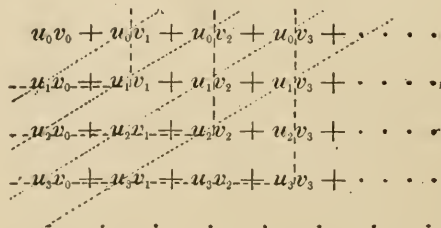 u₀v₀ + u₀v₁ + u₀v₂ + u₀v₃ + · · · ·
u₁v₀ + u₁v₁ + u₁v₂ + u₁v₃ + · · · ·
u₂v₀ + u₂v₁ + u₂v₂ + u₂v₃ + · · · ·
u₃v₀ + u₃v₁ + u₃v₂ + u₃v₃ + · · · ·
· · · · · · · ·